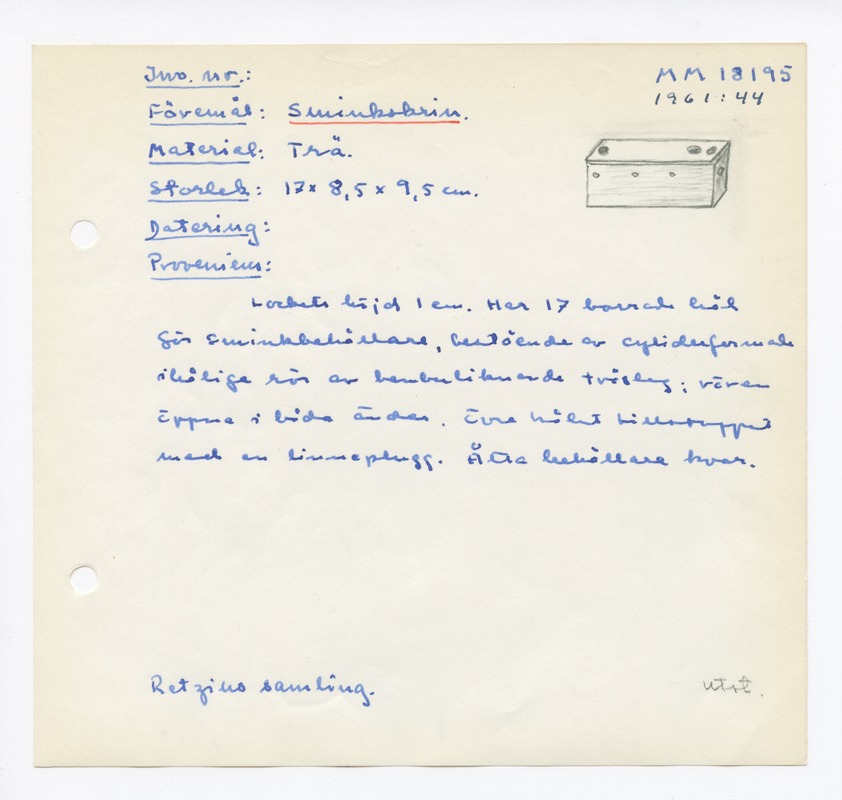 Inv. nr.: MM 18195
1961:44
Föremål: Sminkskrin.
Material: Trä.
Storlek: 17 x 8,5 x 9,5 cm.
Datering:
Proveniens:
Lockets höjd 1 cm. Har 17 borrade hål
för sminkbehållare, bestående av cylinderformade
ihåliga rör av bambuliknande träslag; rören
öppna i båda ändar. Övre hålet tillstoppat
med en linneplugg. Åtta behållare kvar.
Retzius samling.
utst.